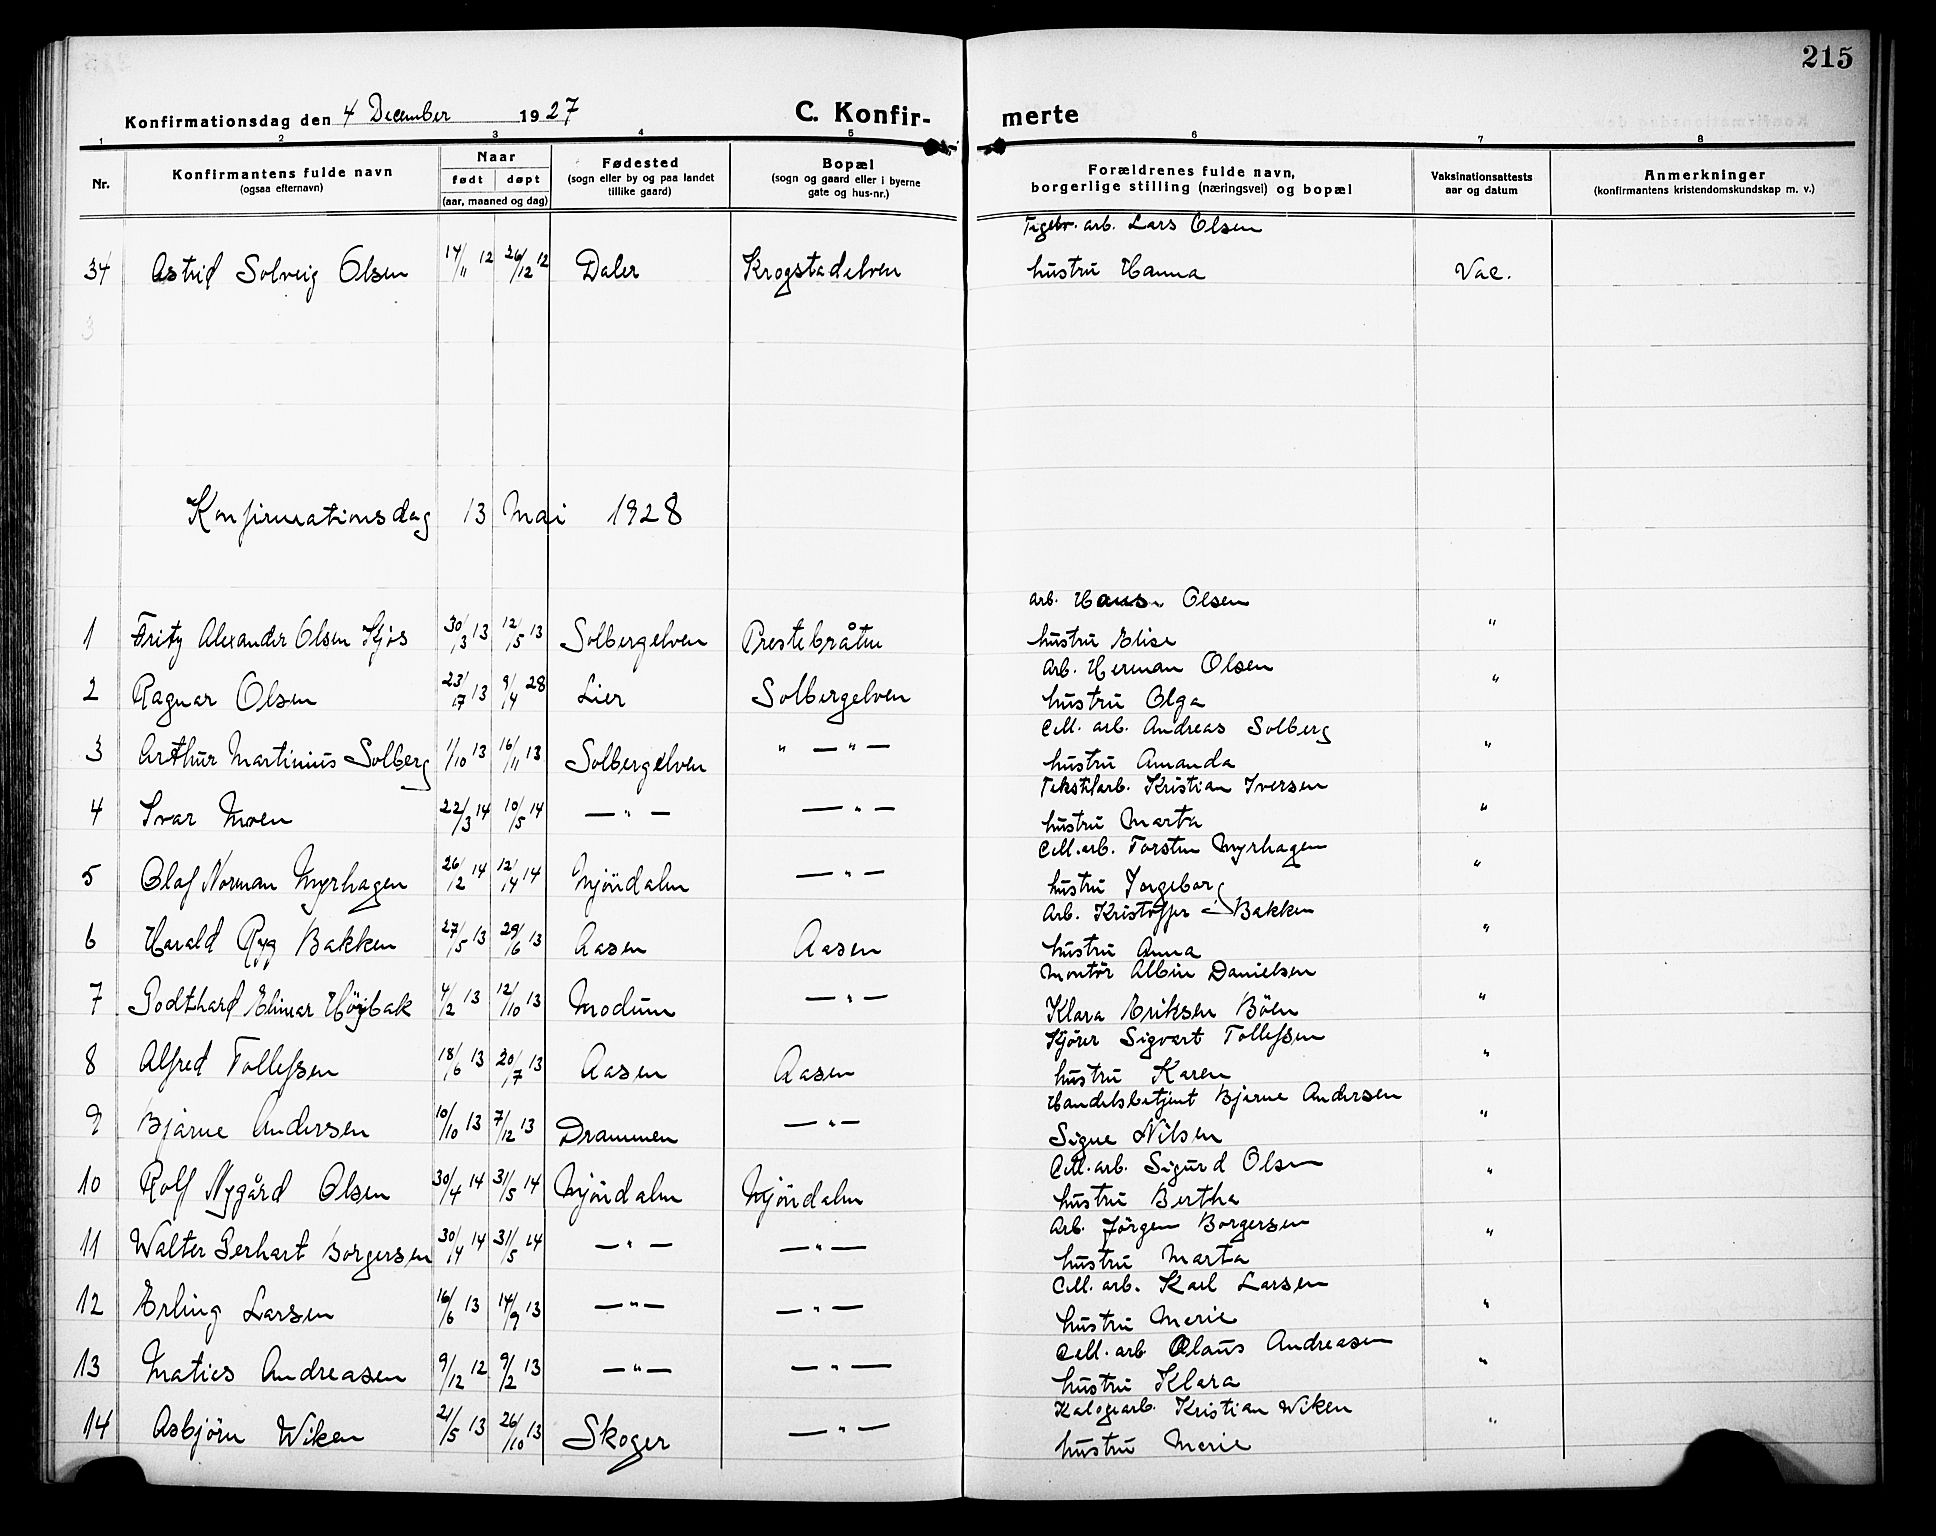 215
Konfirmationsdag den 4 December 1927 C. Konfir- merte
1 2 3 4 5 6 7 8
Nr. Konfirmantens fulde navn (ogsaa efternavn) Naar født døpt (aar, maaned og dag) Fødested (sogn eller by og paa landet tillike gaard) Bopæl (sogn og gaard eller i byerne gate og hus-nr.) Forældrenes fulde navn, borgerlige stilling (næringsvei) og bopæl Vaksinationsattests aar og datum Anmerkninger (konfirmantens kristendomskundskap m. v.)
arb. Lars Olsen
34 Astrid Solveig Olsen 14/11 12 26/12 12 Daler Krogstadelven hustru Hanna Vac.
3
Konfirmationsdag 13 Mai 1928
arb. Hans Olsen
1 Fritz Alexander Olsen 30/3 13 12/5 13 Solbergelven Prestebråten hustru Elise "
Arb. Herman Olsen
2 Ragnar Olsen 23/7 13 9/4 28 Lier Solbergelven hustru Olga "
Cell. arb. Andreas Solberg
3 Arthur Martinius Solberg 1/10 13 16/11 13 Solbergelven " — " — hustru Amanda "
Tekstilarb. Kristian Iversen
4 Ivar Moen 22/3 14 10/5 14 — " — — " — hustru Marta "
Cell. arb. Torsten Myrhagen
5 Olaf Norman Myrhagen 26/2 14 12/4 14 Mjöndalen — " — hustru Ingeborg "
Arb. Kristoffer Bakken
6 Harald Ryg Bakken 27/5 13 29/6 13 Aasen Aasen hustru Anna "
Montör Albin Danielsen
7 Godthard Elinar Höybak 4/2 13 12/10 13 Modum — " — Klara Eriksen Böen "
Kjörer Sigvart Tollefsen
8 Alfred Tollefsen 18/6 13 20/7 13 Aasen Aasen hustru Karen "
Handelsbetjent Bjarne Andersen
9 Bjarne Andersen 10/10 13 7/12 13 Drammen — " — Signe Nilsen "
Cell. arb. Sigurd Olsen
10 Rolf Nygård Olsen 30/4 14 31/5 14 Mjöndalen Mjöndalen hustru Bertha "
Arb. Jörgen Borgersen
11 Walter Gerhart Borgersen 30/4 14 31/5 14 — " — — " — hustru Marta "
Cell. arb. Karl Larsen
12 Erling Larsen 16/6 13 14/9 13 — " — — " — hustru Marie "
Cell. arb Olaus Andreasen
13 Maties Andreasen 9/12 12 9/2 13 — " — — " — hustru Klara "
Kristian Wiken
14 Asbjörn Wiken 21/5 13 26/10 13 Skoger — " — hustru Marie "